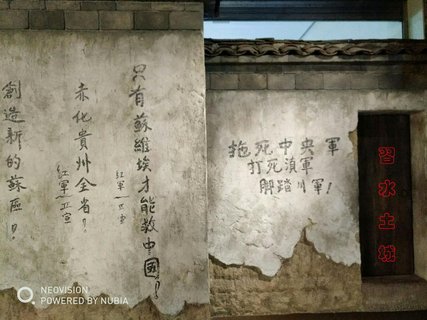 只有蘇維埃才能救中國!
紅軍
赤化貴州全省!
紅軍
創造新的蘇區!
拖死中央軍
打死滇軍
川軍!
習水土城
NEOVISION
POWERED BY NUBIA